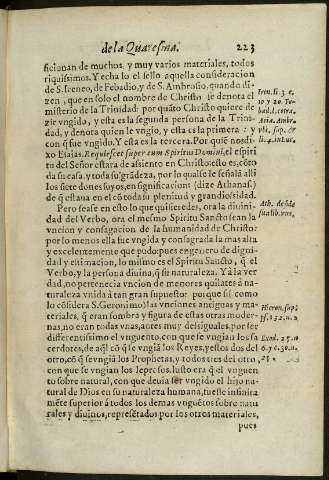 de la Quaresma. 223
ficionan de muchos y muy varios materiales, todos
riquissimos. Y echa lo el sello aquella consideracion
de S. Ireneo, de Febadio, y de S. Ambrosio, quando di-
zen, que en solo el nombre de Christo se denota el
misterio de la Trinidad: por quãto Christo quiere de
zir vngido, y esta es la segunda persona de la Trini-
dad, y denota quien le vngio, y esta es la primera: y
con q̃ fue vngido. Y esta es la tercera. Por quiẽ nos di-
xo Esaias. Requiescet super eum Spiritus Domini, el espiri
tu del Señor estara de assiento en Christo: esto es, cõto
da su casa, y toda su grãdeza, por lo qual se le señalã alli
los siete dones suyos, en significacion (dize Athanas.)
de q̃ estaua en el cõ toda su plenitud y grandiosidad.
Pero sease en esto lo que quisieredes, ora la diuini-
dad del Verbo, ora el mesmo Spiritu Sancto sean la
vncion y consagacion de la humanidad de Christo:
por lo menos ella fue vngida y consagrada la mas alta
y excelentemente que pudo: pues en genero de digni-
dad y estimacion, lo mismo es el Spiritu Sancto, q̃ el
Verbo, y la persona diuina, q̃ su naturaleza. Y à la ver
dad, no pertenecia vncion de menores quilates â na-
turaleza vnida â tan gran supuesto: porque si como
lo cõsidera S. Geronimo) las vnciones antiguas y ma-
teriales, q̃ eran sombra y figura de estas otras moder-
nas, no eran todas vnas, antes muy desiguales, por ser
differentissimo el vnguento, con que se vngian los sa
cerdotes, de aq̃l cõ q̃ se vngiã los Reyes, y estos dos del
otro, cõ q̃ se vngiã los Prophetas, y todos tres del otro,
con que se vngian los leprosos. Iusto era q̃ el vnguen
to sobre natural, con que deuia ser vngido el hijo nat
tural de Dios en su naturaleza humana, fuesse infinita
mẽte superior â todos los demas vnguẽtos sobre natu
rales y diuinos, represẽtados por los otros materiales,
pues
Iren. li. 3. c.
10 y 20. Fe-
bad. l. cõtra.
Aria. Ambr.
li. 4. in Luc.
Hieron. sup.
ps. 132. n. 2